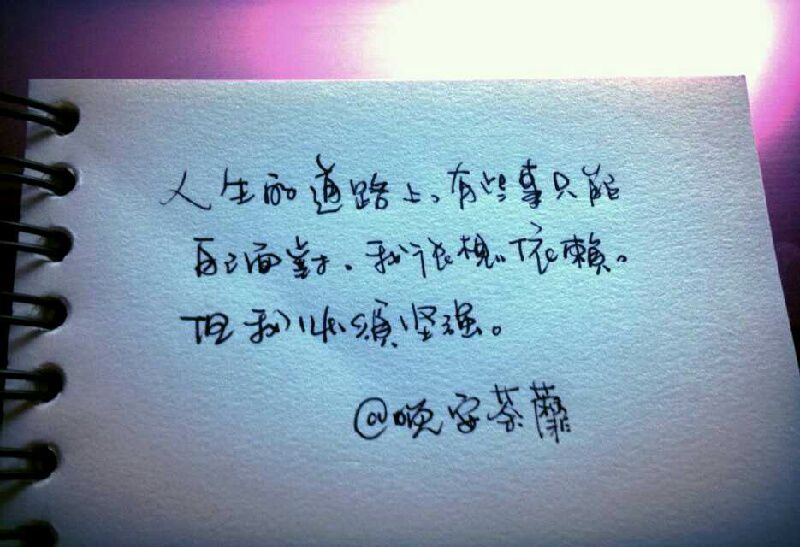 人生的道路上，有些事只能
自己面對，我很想依賴。
但我必須坚强。
@晚安荼蘼